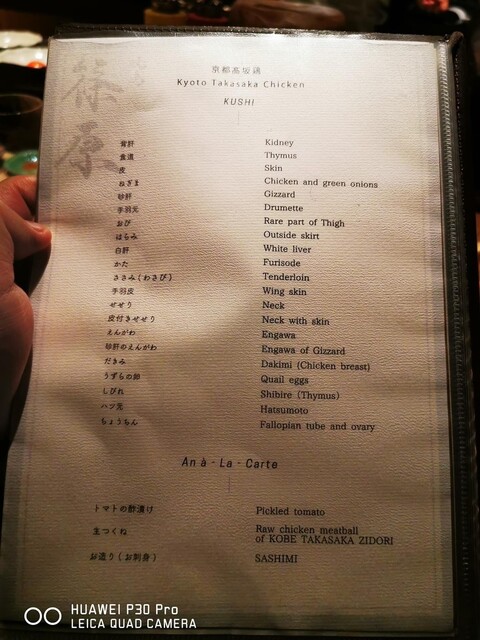 篠原
京都高坂鶏
Kyoto Takasaka Chicken
KUSHI
背肝 Kidney
食道 Thymus
皮 Skin
ねぎま Chicken and green onions
砂肝 Gizzard
手羽元 Drumette
おび Rare part of Thigh
はらみ Outside skirt
白肝 White liver
かた Furisode
ささみ(わさび) Tenderloin
手羽皮 Wing skin
せせり Neck
皮付きせせり Neck with skin
えんがわ Engawa
砂肝のえんがわ Engawa of Gizzard
だきみ Dakimi (Chicken breast)
うずらの卵 Quail eggs
しびれ Shibire (Thymus)
ハツ元 Hatsumoto
ちょうちん Fallopian tube and ovary
An à - La - Carte
トマトの酢漬け Pickled tomato
生つくね Raw chicken meatball
of KOBE TAKASAKA ZIDORI
お造り(お刺身) SASHIMI
HUAWEI P30 Pro
LEICA QUAD CAMERA